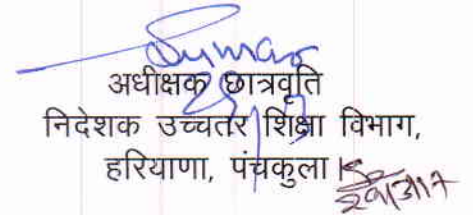 अधीक्षक छात्रवृति
निदेशक उच्चतर शिक्षा विभाग,
हरियाणा, पंचकुला।